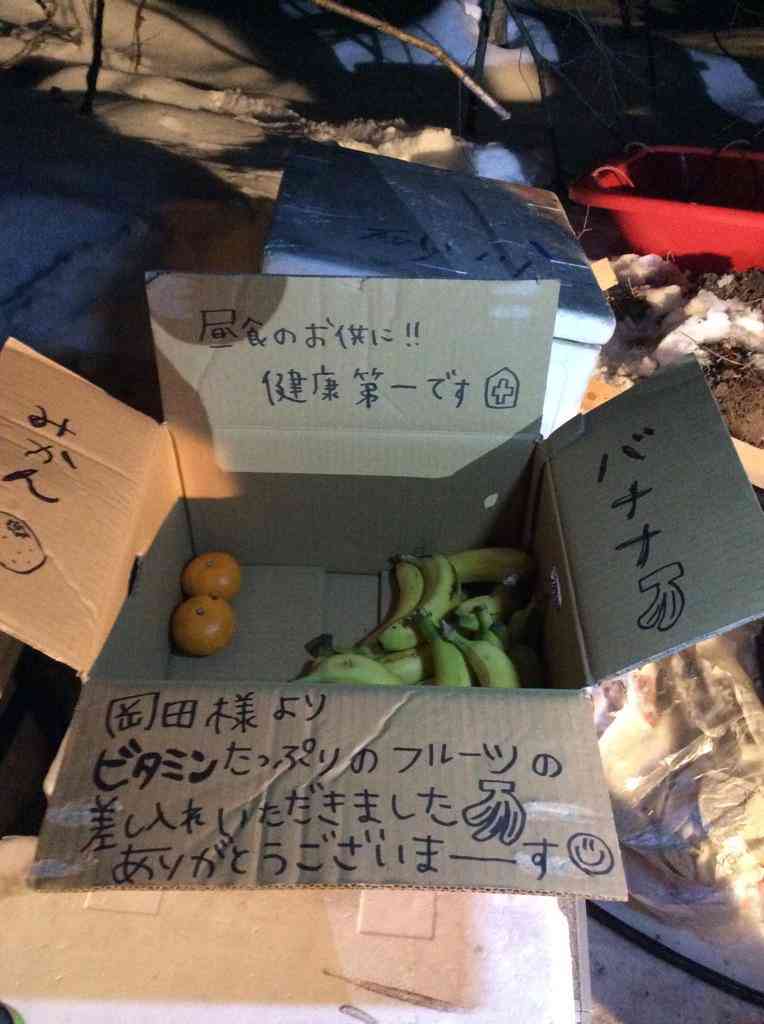 昼食のお供に!!
健康第一です
みかん
バナナ
岡田様より
ビタミンたっぷりのフルーツの
差し入れいただきました
ありがとうございまーーす